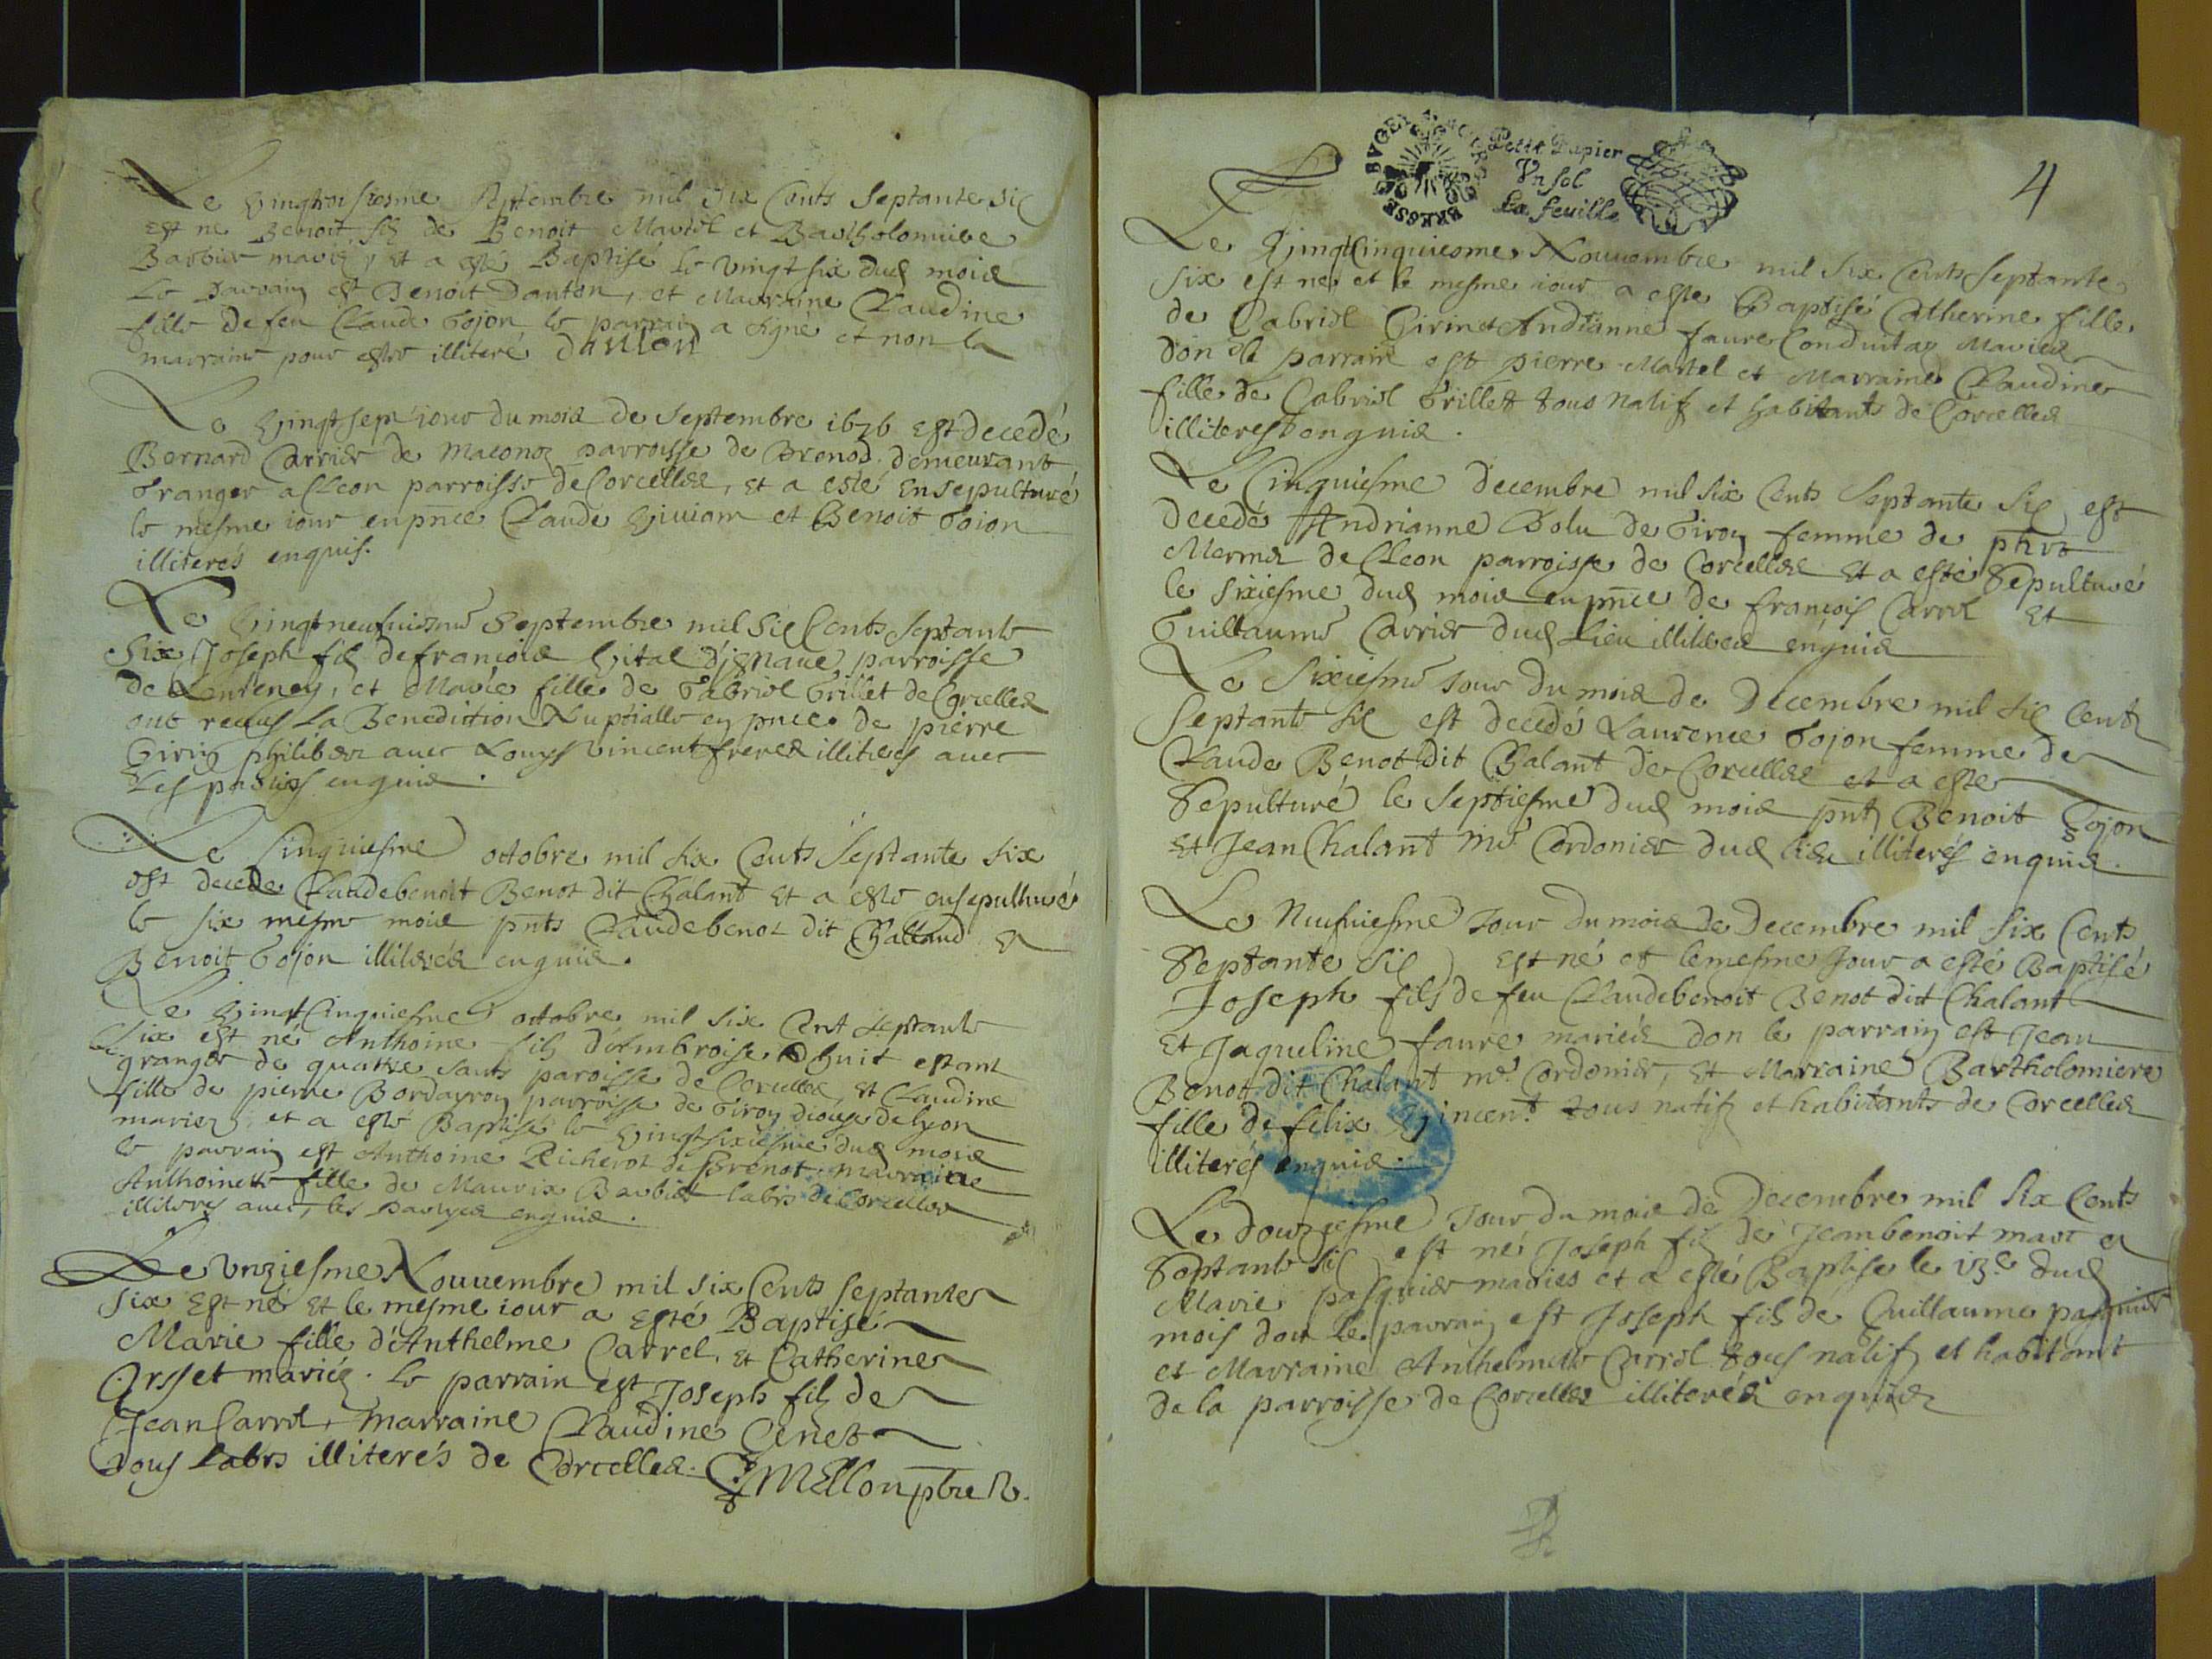 Le Vingtroisiesme Septembre mil six Cents Septante six
est ne Benoit filz de Benoit Martel et Bartholomiere
Barbier mariés, Et a esté Baptisé le vingt six dud mois
Le parrain est Benoit Danton, et Marraine Claudine
fille de feu Claude Gojon le parrain a signé et non la
marraine pour estre illiteré Danton
Le Vingt sept iour du mois de Septembre 1676 est decedé
Bernard Carrier de Maconoz parroisse de Brenod demeurant
Granger a Cleon parroisse de Corcelles, et a esté Ensepulturé
le mesme iour en pnce Claude et Benoit Gojon
illiterés enquis.
Le Vingt neufuiesme Septembre mil six Cents Septante
Six Joseph filz de francois Vital parroisse
de et Marie fille de Gabriel Grillet de Corcelles
ont receus La Benediction Nuptialle en pnce de pierre
Girin philibert avec Louys Vincent freres illiteres avec
Les parties enquis.
Le Cinquiesme octobre mil six Cents Septante six
est decede Claudebenoit Benot dit Chalant Et a este ensepulturé
le six mesme mois pnts Claude benot dit Challand et
Benoit Gojon illiterés enquis.
Le Vingt Cinquiesme octobre mil six Cent Septante
Six est né Anthoine filz d'Ambroise Dhuit estant
granger de quattre Sauts paroisse de Corcelles, et Claudine
fille de pierre Bordayron parroisse de Giron diouse de lyon
mariez, et a esté Baptisé le Vingt sixiesme dud mois
le parrain est Anthoine Richerot de Brenot, marraine
Anthoinette fille de Maurix Barbier labrs de Corcelles
illiteres avec les parties enquis.
Le Vnziesme Nouuembre mil six Cents septante
six Est né Et le mesme iour a Esté Baptisé
Marie fille d'Anthelme Carrel, Et Catherine
Orsset mariéz. Le parrain est Joseph filz de
Jean Carrel, Marraine Claudine Genet
Tous Labrs illiterés de Corcelles. Mellon pbre
BRESSE BVGEY
Petit Papier
Vn sol
La feuille
4
Le Vingt Cinquiesme Nouuembre mil six Cents Septante
six est ne et le mesme iour a esté Baptisé Catherine fille
de Gabriel Girin et Andrianne faure Conduitaz Mariés
don le parrain est pierre Martel et Marraine Claudine
fille de Gabriel Grillet tous natifz et habitants de Corcelles
illiteres enquis.
Le Cinquiesme decembre mil six Cents Septante Six est
decedé Andrianne Bolu de Giron femme de
Mermet de Cleon parroisse de Corcelles Et a esté Sepulturé
le sixiesme dud mois en pnce de francois Carrel Et
Guillaume Carrier dud Lieu illiteres enquis
Le Sixiesme Jour du mois de Decembre mil six Cents
Septante six est decedé Laurence Gojon femme de
Claude Benot dit Chalant de Corcelles et a esté
Sepulturé le Septiesme dud mois pnts Benoit Gojon
Et Jean Chalant me Cordonier dud lieu illiterés enquis.
Le Neufuiesme Jour du mois de Decembre mil six Cents
Septante six est né et le mesme Jour a esté Baptisé
Joseph fils de feu Claudebenoit Benot dit Chalant
Et Jaqueline faure mariés don le parrain est Jean
Benot dit Chalant me Cordonier, Et Marraine Bartholomiere
fille de felix Vincent tous natifz et habitants de Corcelles
illiterés enquis.
Le douziesme Jour du mois de Decembre mil Six Cents
Septante six est né Joseph filz de Jean benoit mart et
Marie pasquier mariés et a esté Baptise le 13e dud
mois don le parrain est Joseph fils de Guillaume pasquier
et Marraine Anthelmette Carrel tous natifz et habitant
de la parroisse de Corcelles illiterés enquis